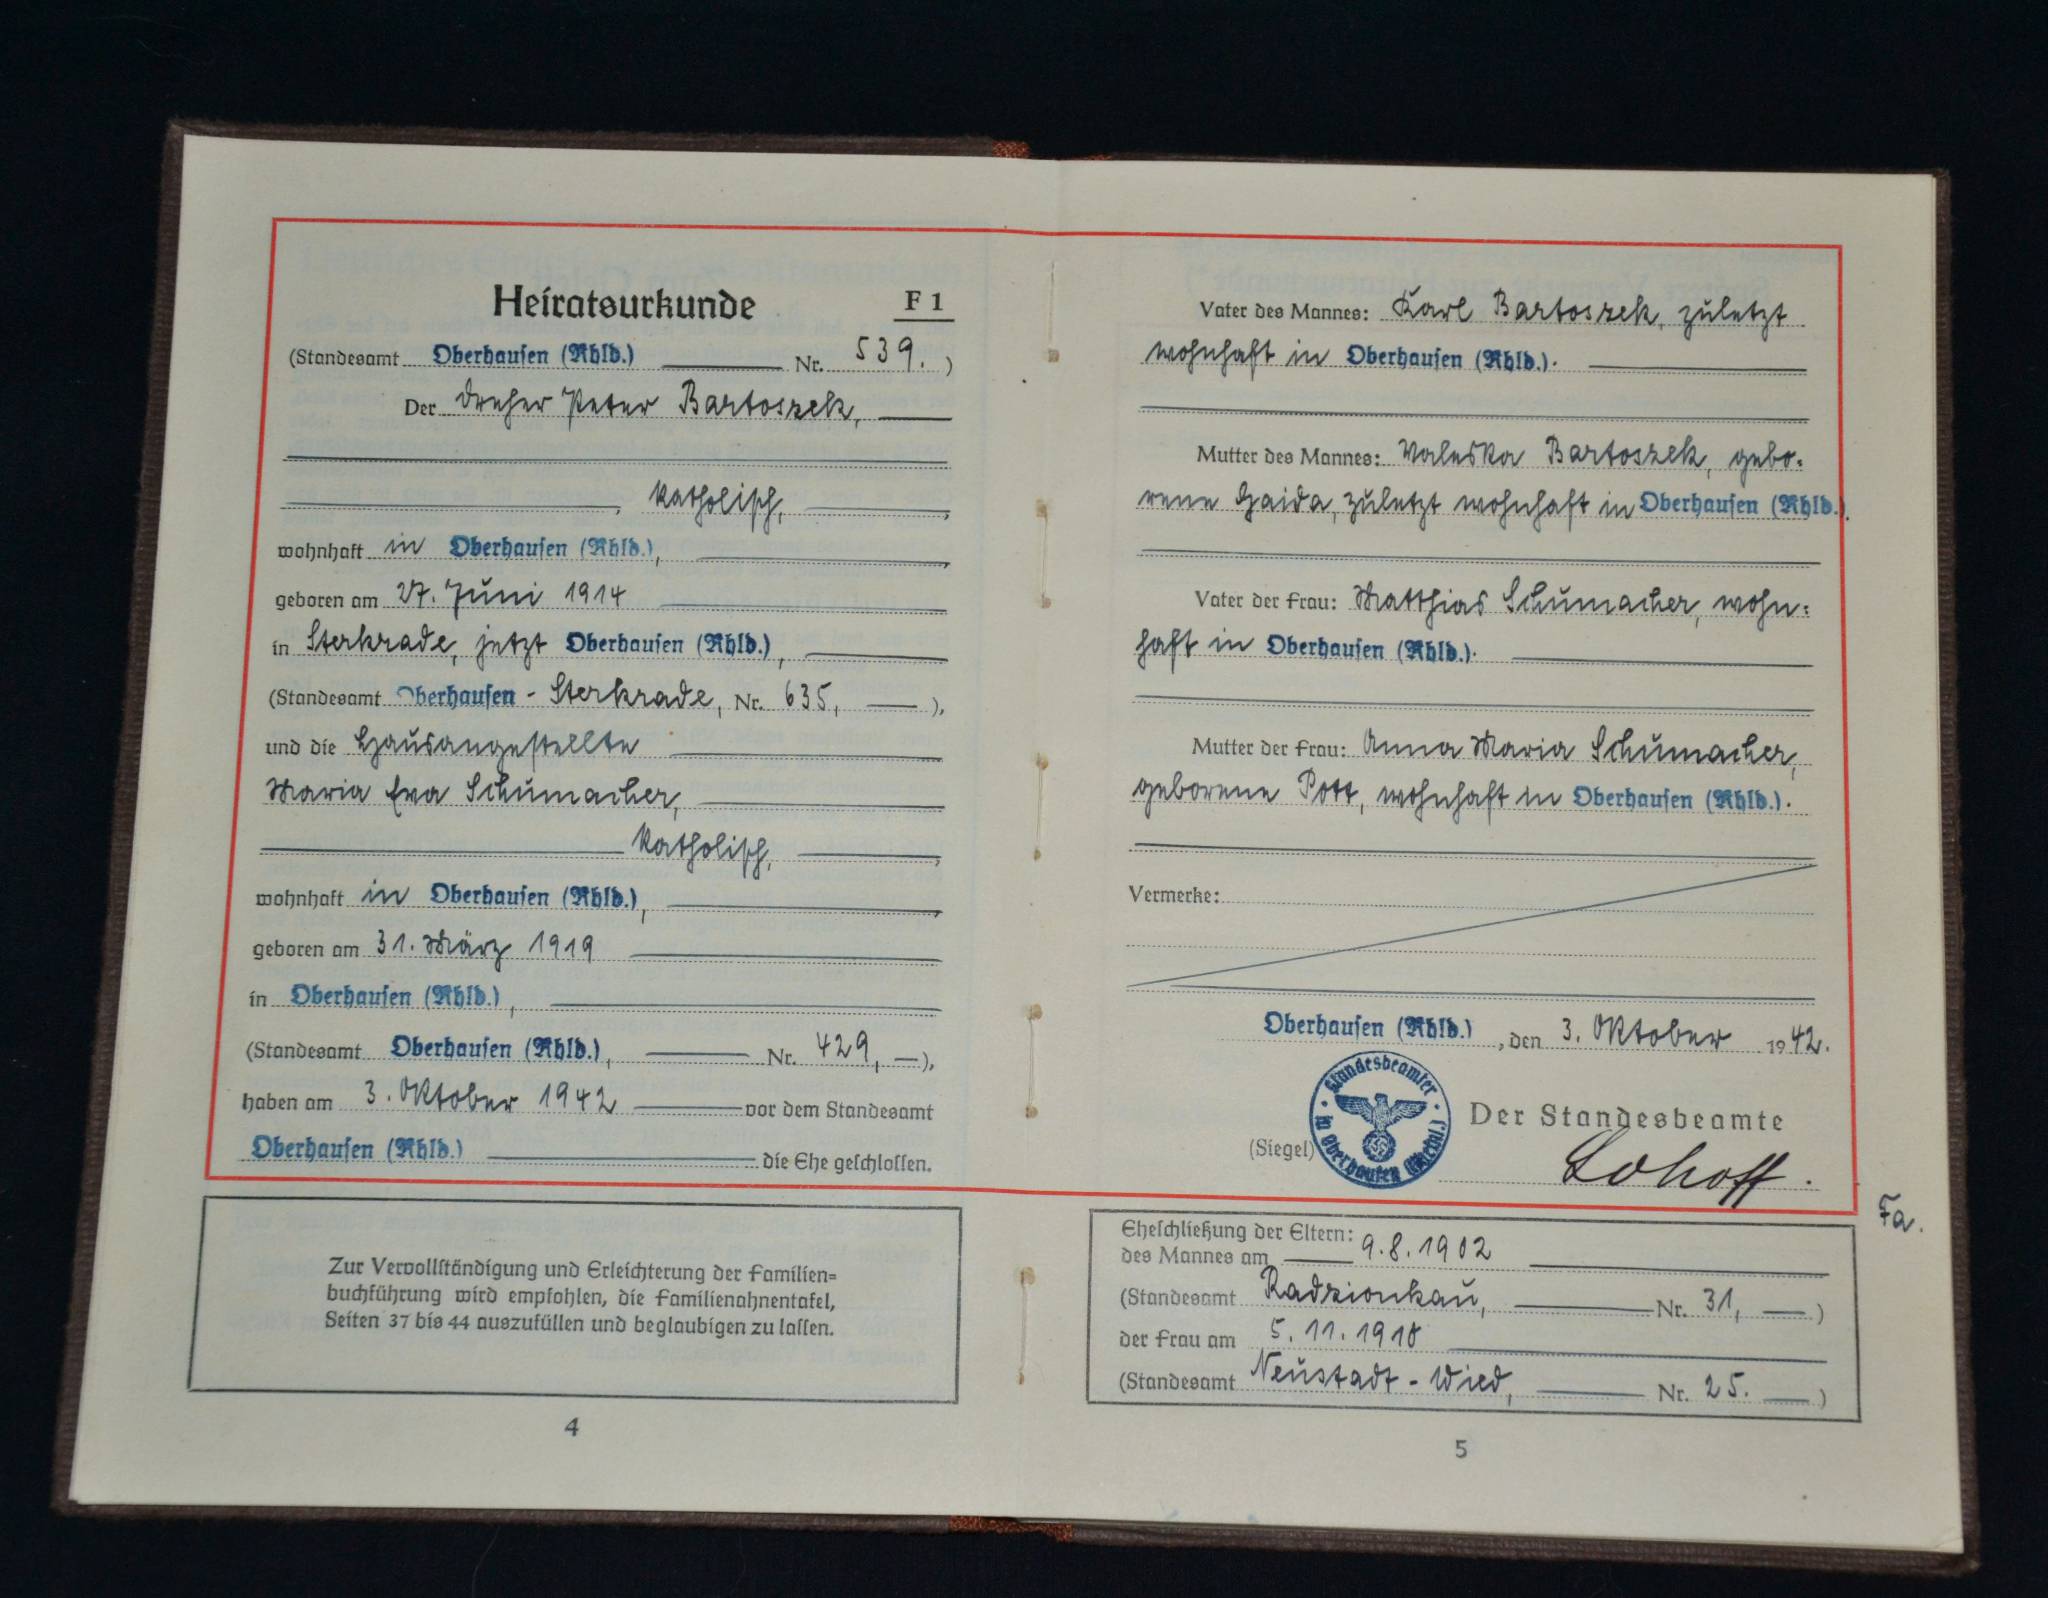 Heiratsurkunde F 1
(Standesamt Oberhausen (Rhld.) Nr. 539.)
Der Dreher Peter Bartoszek,
, katholisch,
wohnhaft in Oberhausen (Rhld.),
geboren am 27. Juni 1914
in Sterkrade, jetzt Oberhausen (Rhld.),
(Standesamt Oberhausen - Sterkrade, Nr. 635, — ),
und die Hausangestellte
Maria Eva Schumacher,
katholisch,
wohnhaft in Oberhausen (Rhld.),
geboren am 31. März 1919
in Oberhausen (Rhld.),
(Standesamt Oberhausen (Rhld.), Nr. 429, —),
haben am 3. Oktober 1942 vor dem Standesamt
Oberhausen (Rhld.) die Ehe geschlossen.
Zur Vervollständigung und Erleichterung der Familien=
buchführung wird empfohlen, die Familienahnentafel,
Seiten 37 bis 44 auszufüllen und beglaubigen zu lassen.
4
Vater des Mannes: Karl Bartoszek, zuletzt
wohnhaft in Oberhausen (Rhld.).
Mutter des Mannes: Valeska Bartoszek, gebo=
rene Gaida, zuletzt wohnhaft in Oberhausen (Rhld.).
Vater der Frau: Matthias Schumacher, wohn=
haft in Oberhausen (Rhld.).
Mutter der Frau: Anna Maria Schumacher,
geborene Pott, wohnhaft in Oberhausen (Rhld.).
Vermerke:
Oberhausen (Rhld.), den 3. Oktober 1942.
Standesbeamter
in Oberhausen (Rheinl.)
Der Standesbeamte
(Siegel) Lohoff.
Fa.
Eheschließung der Eltern:
des Mannes am 9.8.1902
(Standesamt Radzionkau, Nr. 31, — )
der Frau am 5.11.1910
(Standesamt Neustadt - Wied, Nr. 25. — )
5